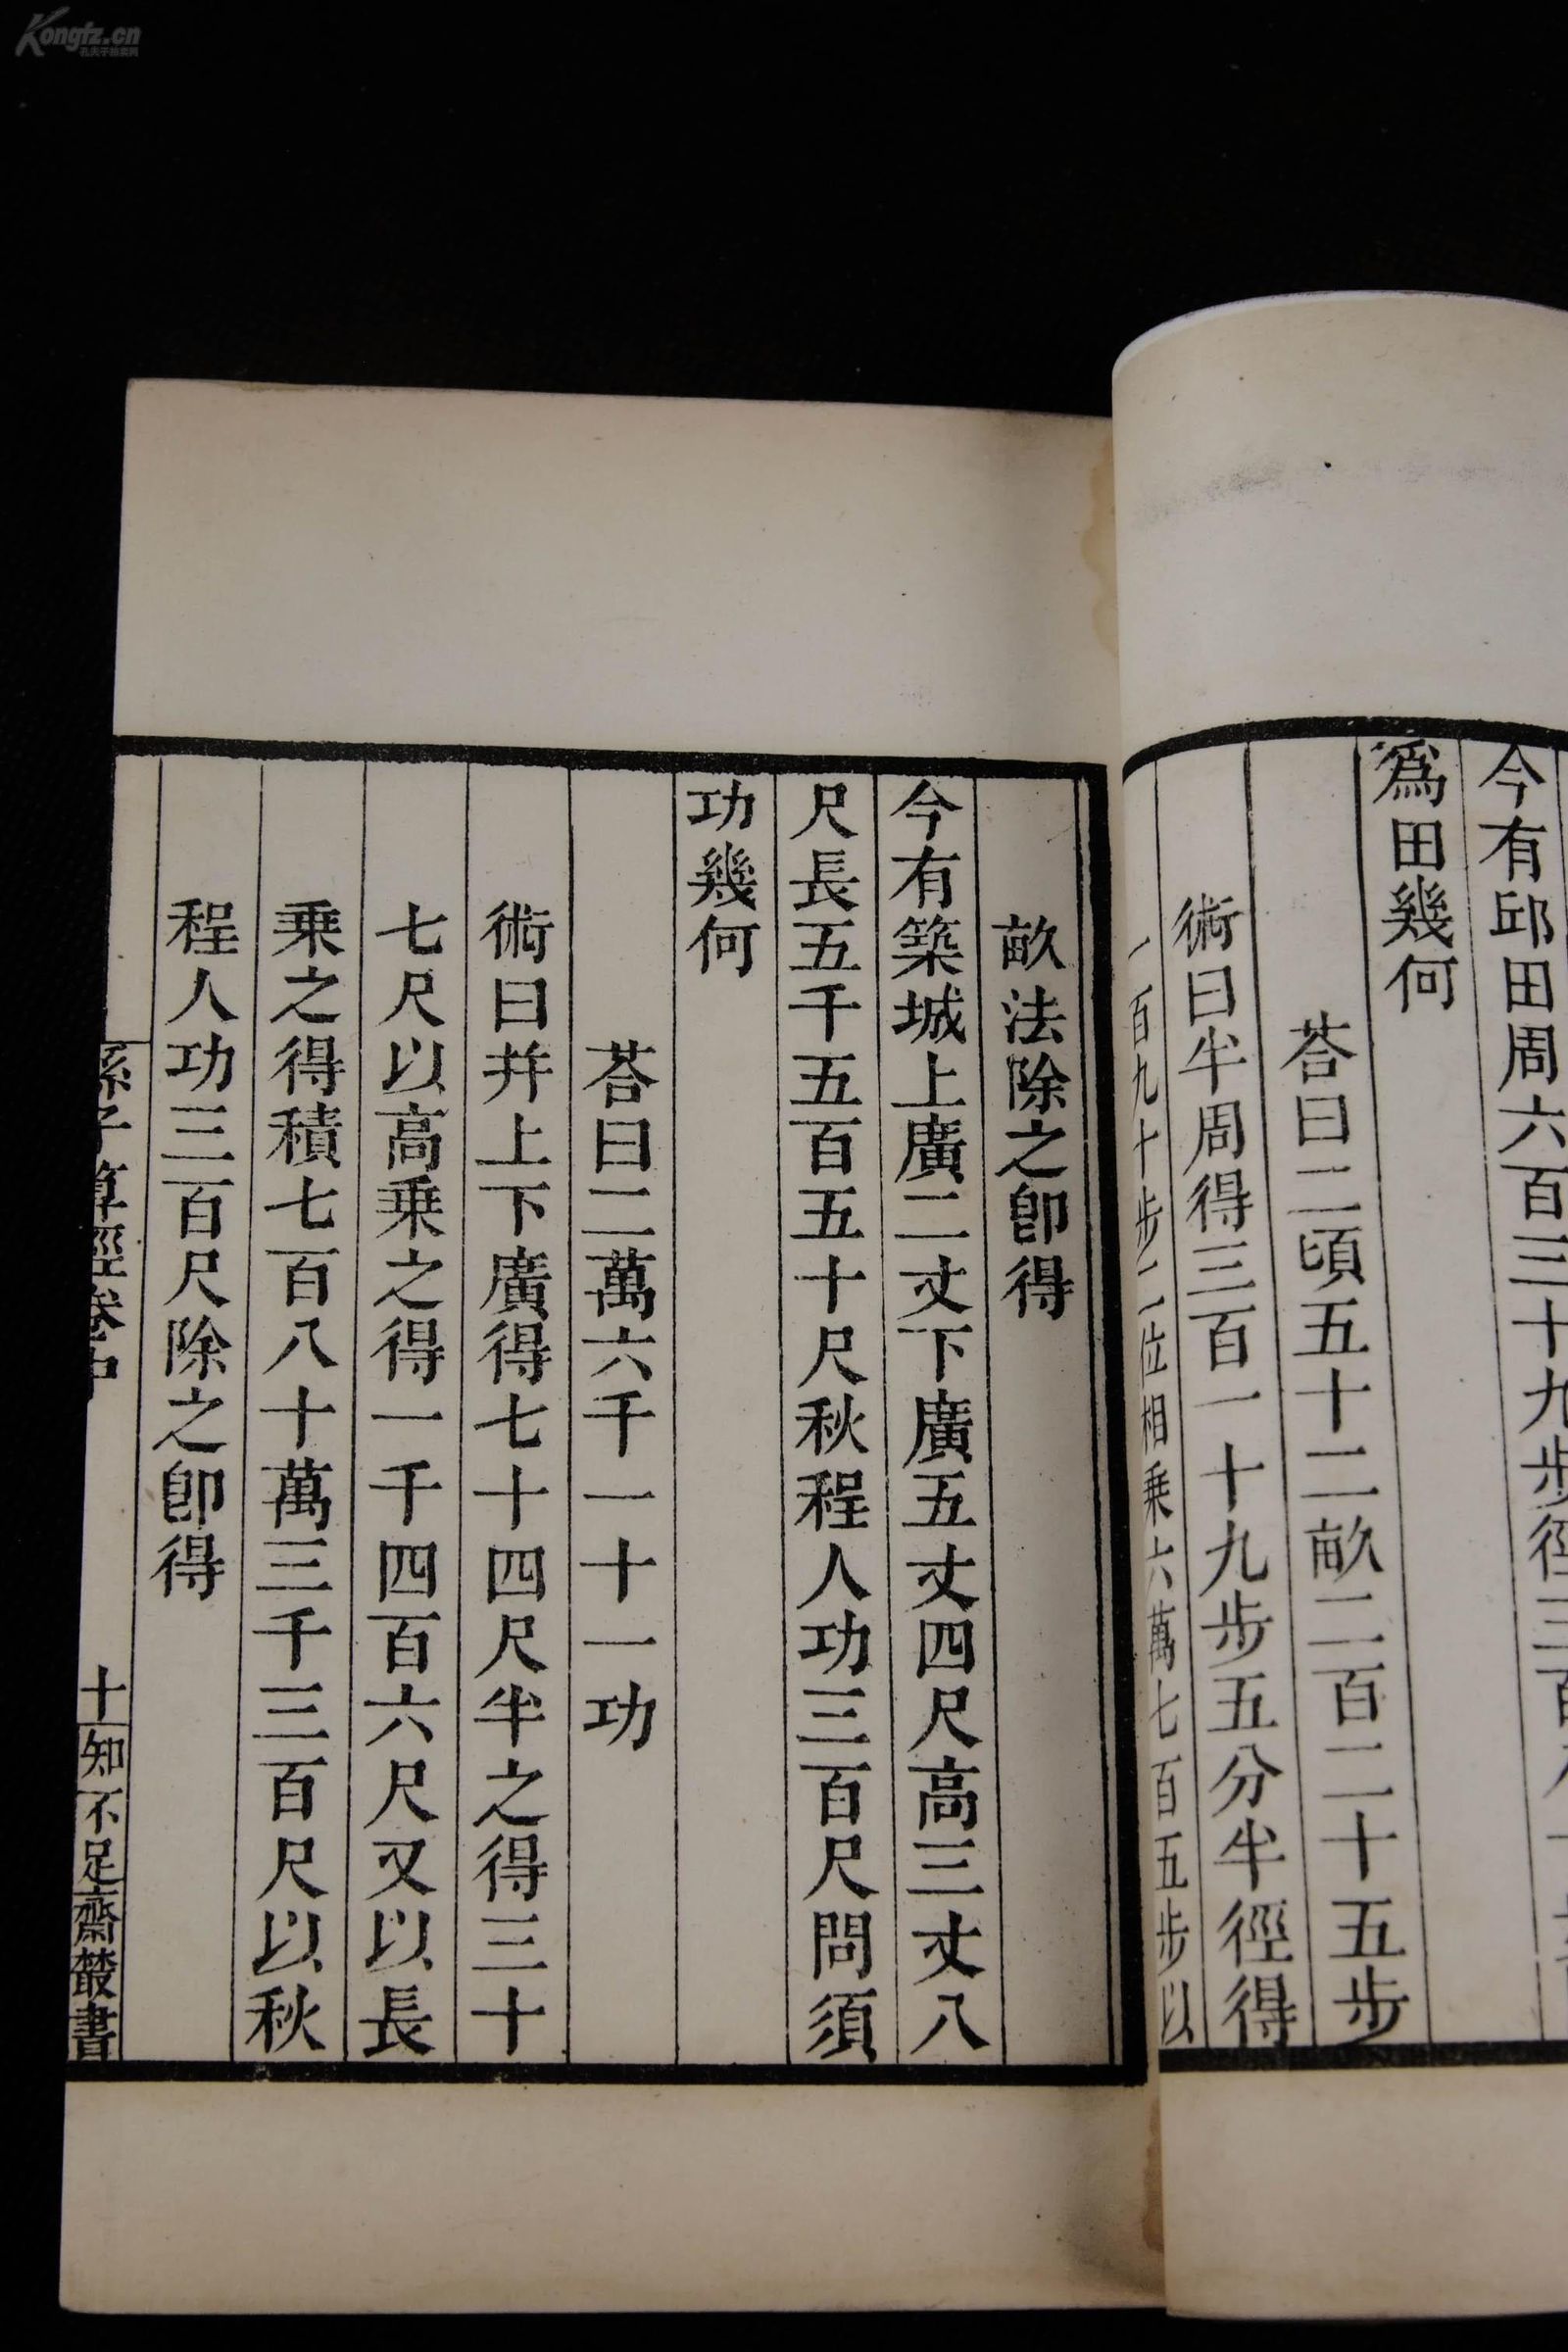 Kongfz.cn
孔夫子拍卖网
今有邱田周六百三十九步徑三百
爲田幾何
荅曰二頃五十二畝二百二十五步
術曰半周得三百一十九步五分半徑得
一百九十步二位相乗六萬七百五步以
畝法除之卽得
今有築城上廣二丈下廣五丈四尺高三丈八
尺長五千五百五十尺秋程人功三百尺問須
功幾何
荅曰二萬六千一十一功
術曰幷上下廣得七十四尺半之得三十
七尺以高乗之得一千四百六尺又以長
乗之得積七百八十萬三千三百尺以秋
程人功三百尺除之卽得
孫子算經卷中
十
知不足齋叢書